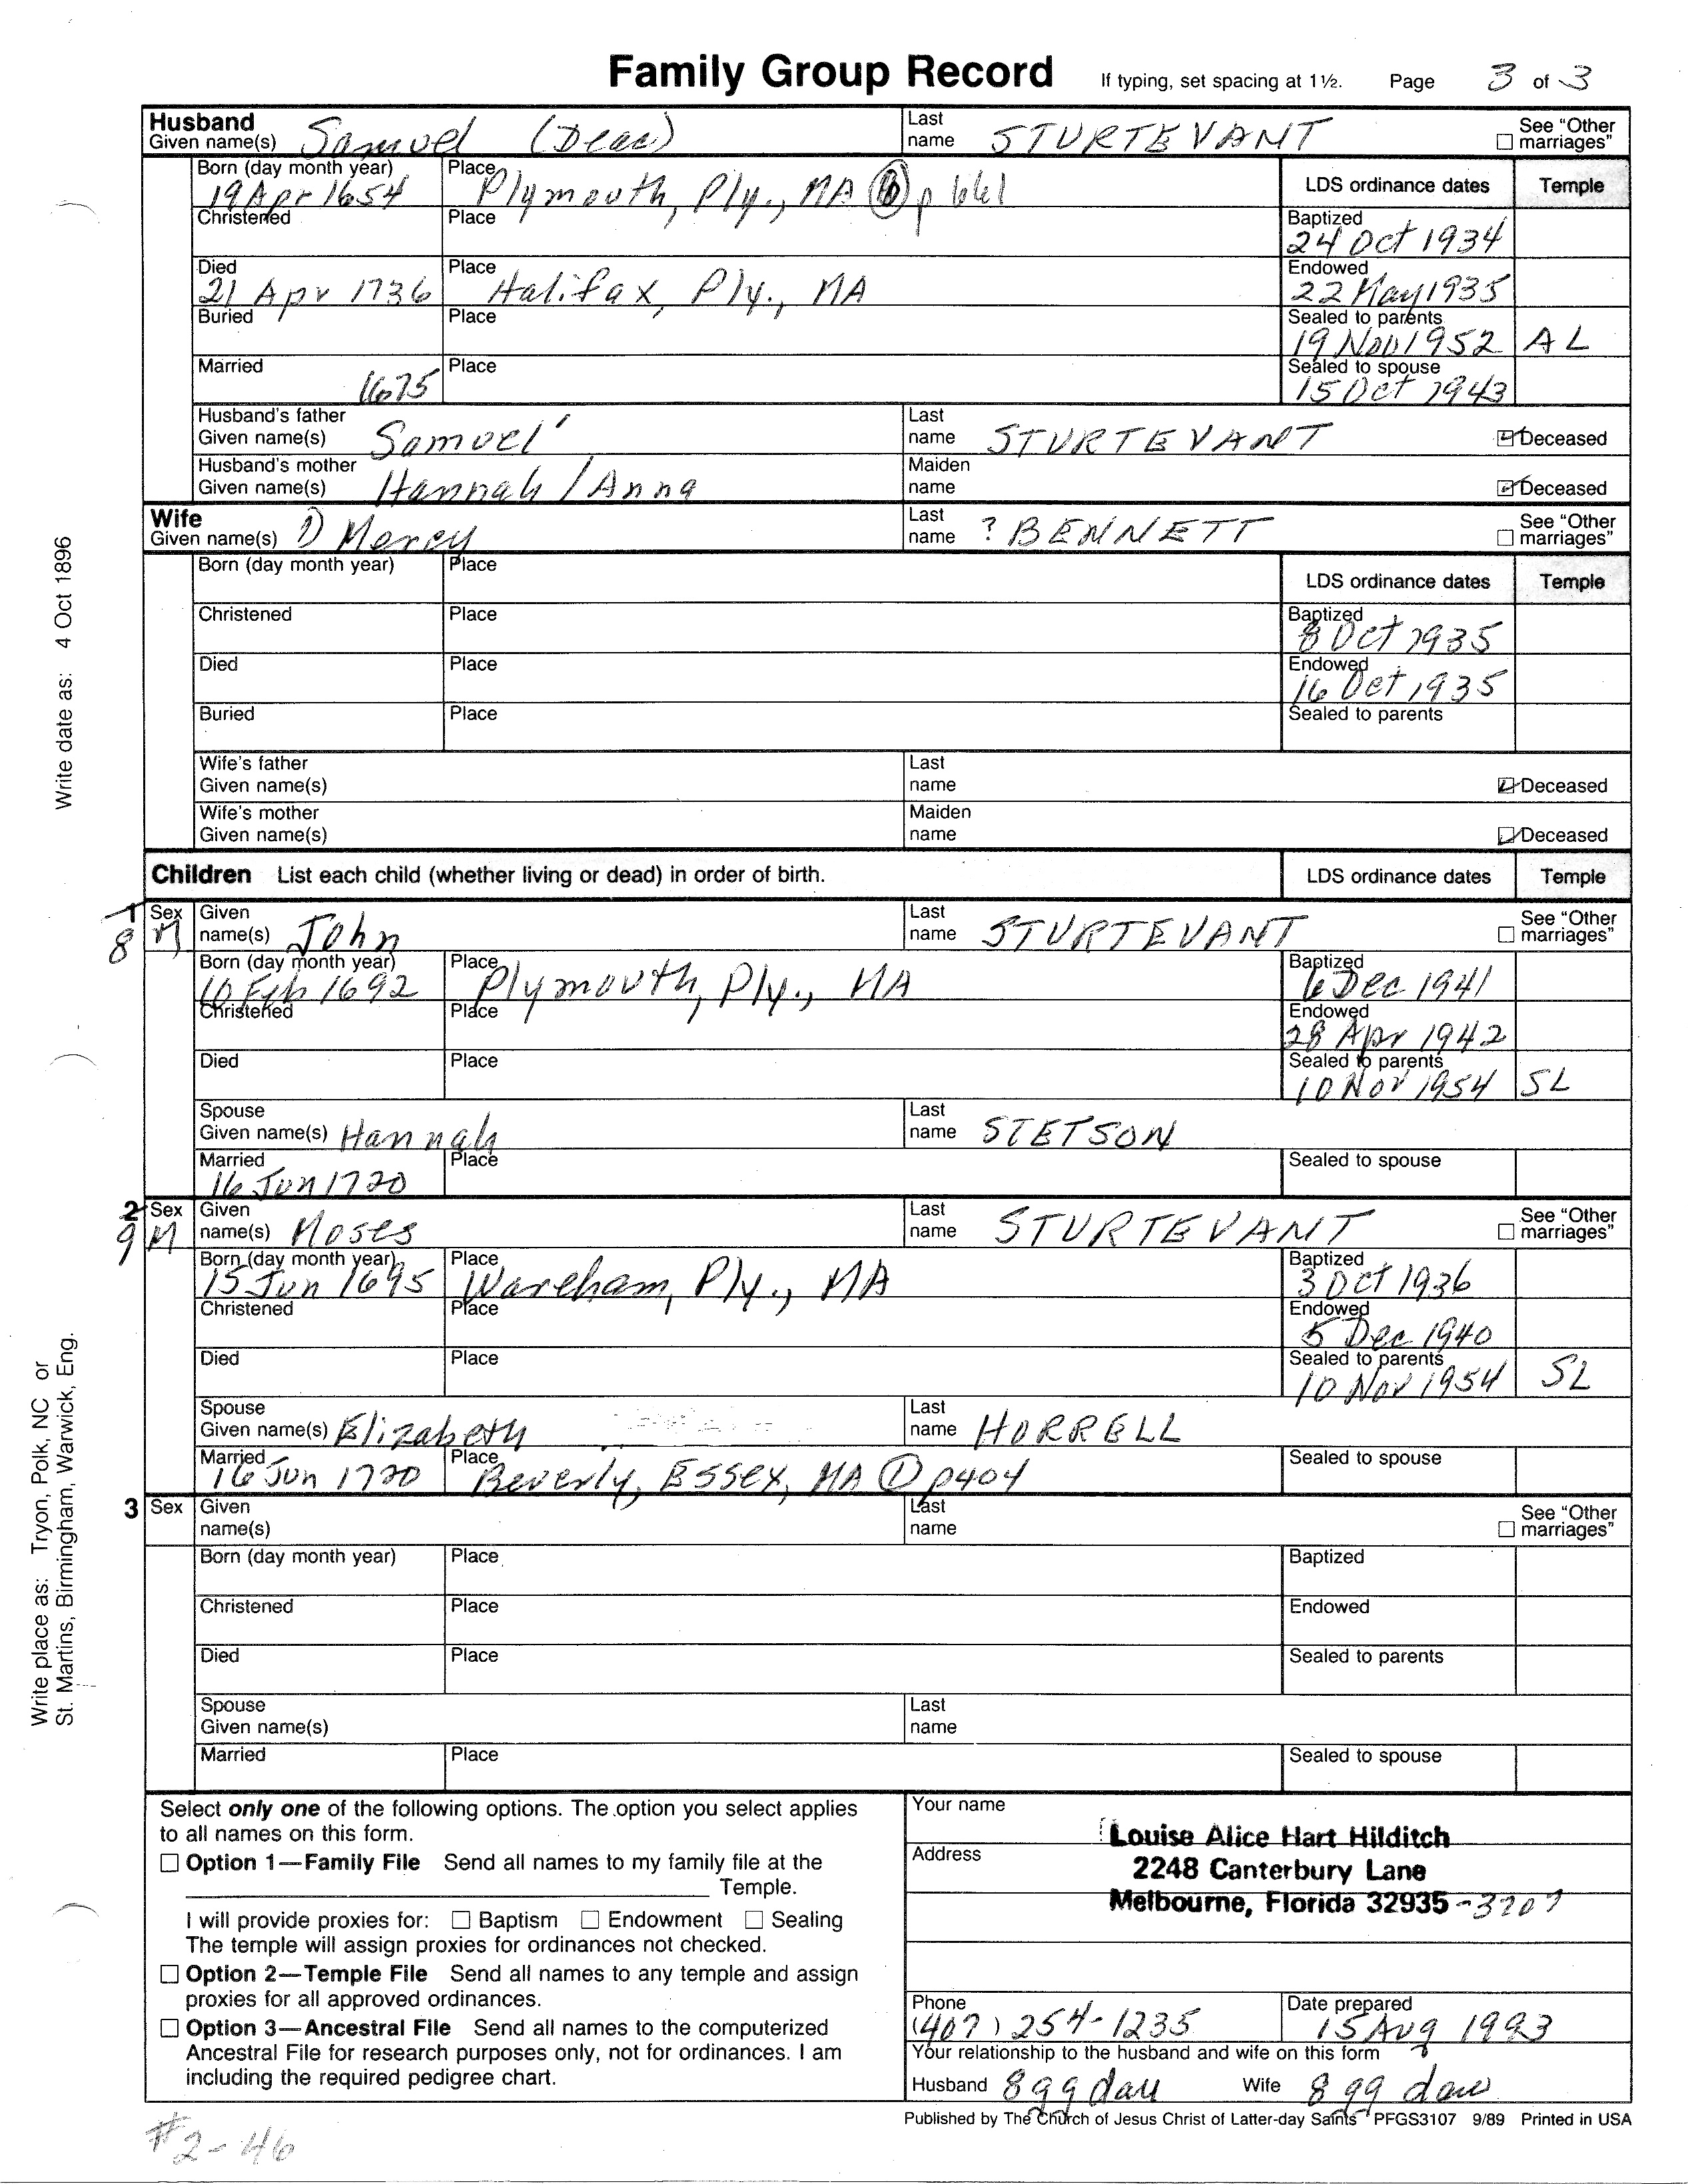 Family Group Record If typing, set spacing at 1½. Page 3 of 3
Husband
Given name(s) Samuel (Deac) Last name STURTEVANT ☐ See "Other marriages"
Born (day month year) 19 Apr 1654 Place Plymouth, Ply., MA ⑥ p 661 LDS ordinance dates Temple
Christened Place Baptized 24 Oct 1934
Died 21 Apr 1736 Place Halifax, Ply., MA Endowed 22 May 1935
Buried Place Sealed to parents 19 Nov 1952 AL
Married 1675 Place Sealed to spouse 15 Oct 1943
Husband's father Given name(s) Samuel Last name STURTEVANT ☑ Deceased
Husband's mother Given name(s) Hannah / Anna Maiden name ☑ Deceased
Wife
Given name(s) D Mercy Last name ? BENNETT ☐ See "Other marriages"
Born (day month year) Place LDS ordinance dates Temple
Christened Place Baptized 8 Oct 1935
Died Place Endowed 16 Oct 1935
Buried Place Sealed to parents
Wife's father Given name(s) Last name ☑ Deceased
Wife's mother Given name(s) Maiden name ☑ Deceased
Children List each child (whether living or dead) in order of birth. LDS ordinance dates Temple
1 8 Sex M Given name(s) John Last name STURTEVANT ☐ See "Other marriages"
Born (day month year) 10 Feb 1692 Place Plymouth, Ply., MA Baptized 6 Dec 1941
Christened Place Endowed 28 Apr 1942
Died Place Sealed to parents 10 Nov 1954 SL
Spouse Given name(s) Hannah Last name STETSON
Married 16 Jun 1720 Place Sealed to spouse
2 9 Sex M Given name(s) Moses Last name STURTEVANT ☐ See "Other marriages"
Born (day month year) 15 Jun 1695 Place Wareham, Ply., MA Baptized 3 Oct 1936
Christened Place Endowed 5 Dec 1940
Died Place Sealed to parents 10 Nov 1954 SL
Spouse Given name(s) Elizabeth Last name HORRELL
Married 16 Jun 1720 Place Beverly, Essex, MA ① p404 Sealed to spouse
3 Sex Given name(s) Last name ☐ See "Other marriages"
Born (day month year) Place Baptized
Christened Place Endowed
Died Place Sealed to parents
Spouse Given name(s) Last name
Married Place Sealed to spouse
Select only one of the following options. The option you select applies
to all names on this form.
☐ Option 1—Family File Send all names to my family file at the
Temple.
I will provide proxies for: ☐ Baptism ☐ Endowment ☐ Sealing
The temple will assign proxies for ordinances not checked.
☐ Option 2—Temple File Send all names to any temple and assign
proxies for all approved ordinances.
☐ Option 3—Ancestral File Send all names to the computerized
Ancestral File for research purposes only, not for ordinances. I am
including the required pedigree chart.
Your name Louise Alice Hart Hilditch
Address 2248 Canterbury Lane
Melbourne, Florida 32935-3207
Phone (407) 254-1235 Date prepared 15 Aug 1993
Your relationship to the husband and wife on this form
Husband 8 gg dau Wife 8 gg dau
Published by The Church of Jesus Christ of Latter-day Saints PFGS3107 9/89 Printed in USA
#2-46
Write date as: 4 Oct 1896
Write place as: Tryon, Polk, NC or
St. Martins, Birmingham, Warwick, Eng.